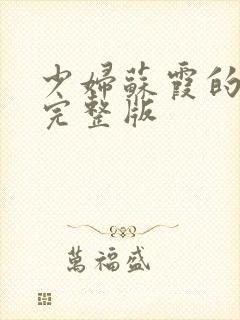 少婦蘇霞的
完整版
萬福盛